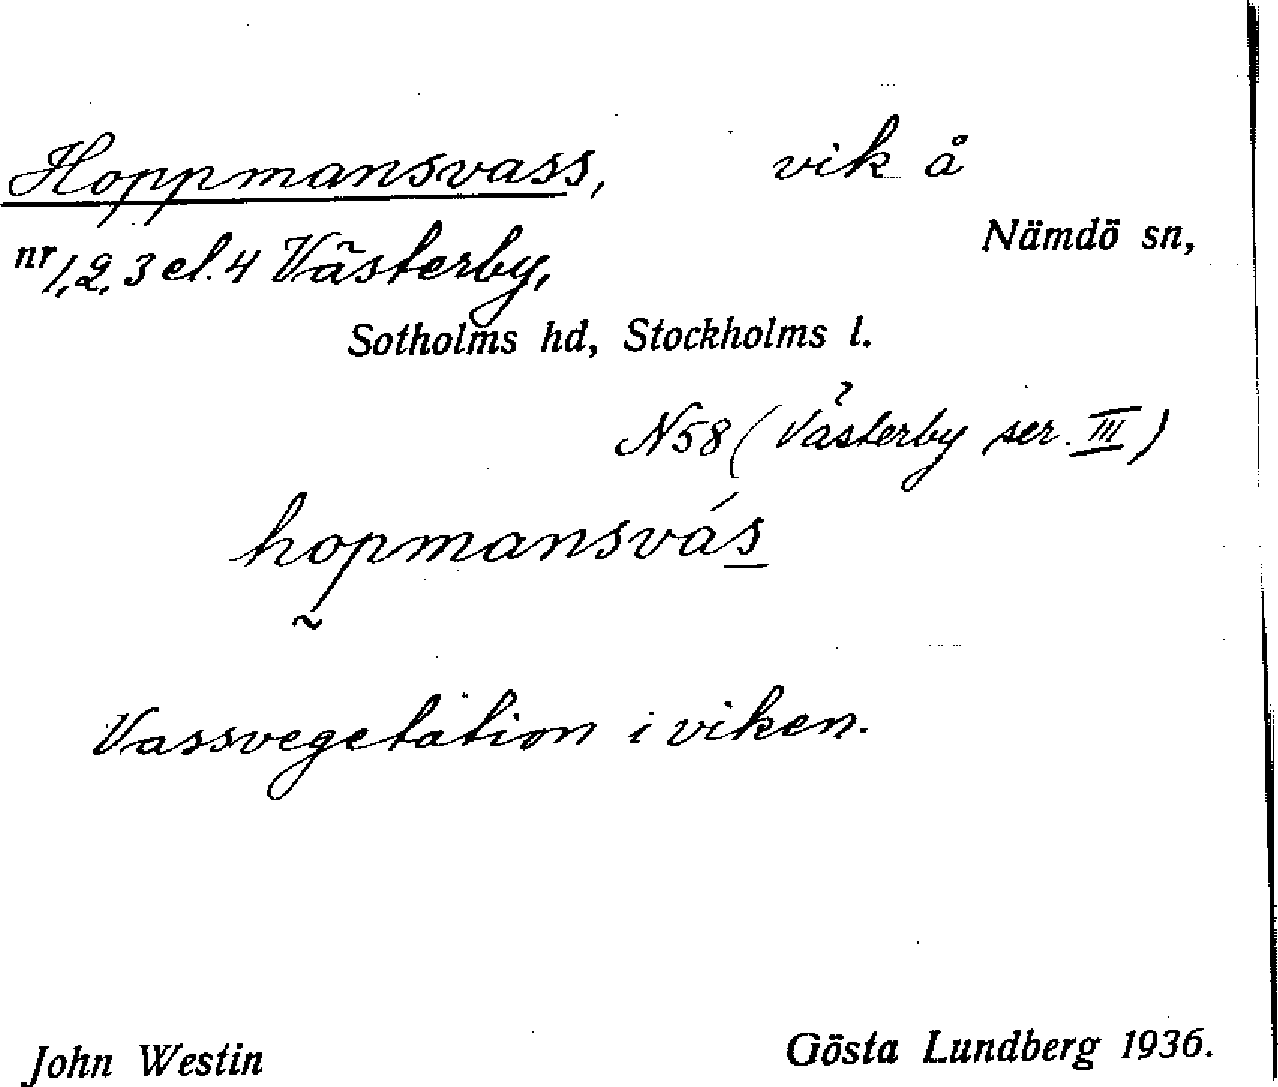 Hoppmansvass, vik å
Nämdö sn,
nr 1, 2, 3 el. 4 Västerby,
Sotholms hd, Stockholms l.
N58 (Västerby ser. III)
hopmansvás
Vassvegetation i viken.
John Westin Gösta Lundberg 1936.